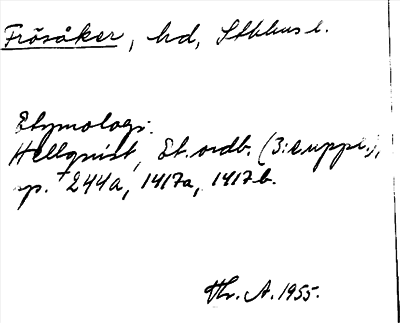 Frösåker, hd, Sthlms l.
Etymologi:
Hellquist, Et. ordb. (3:e uppl.),
sp. 244a, 1417a, 1417b.
Hr. A. 1955.